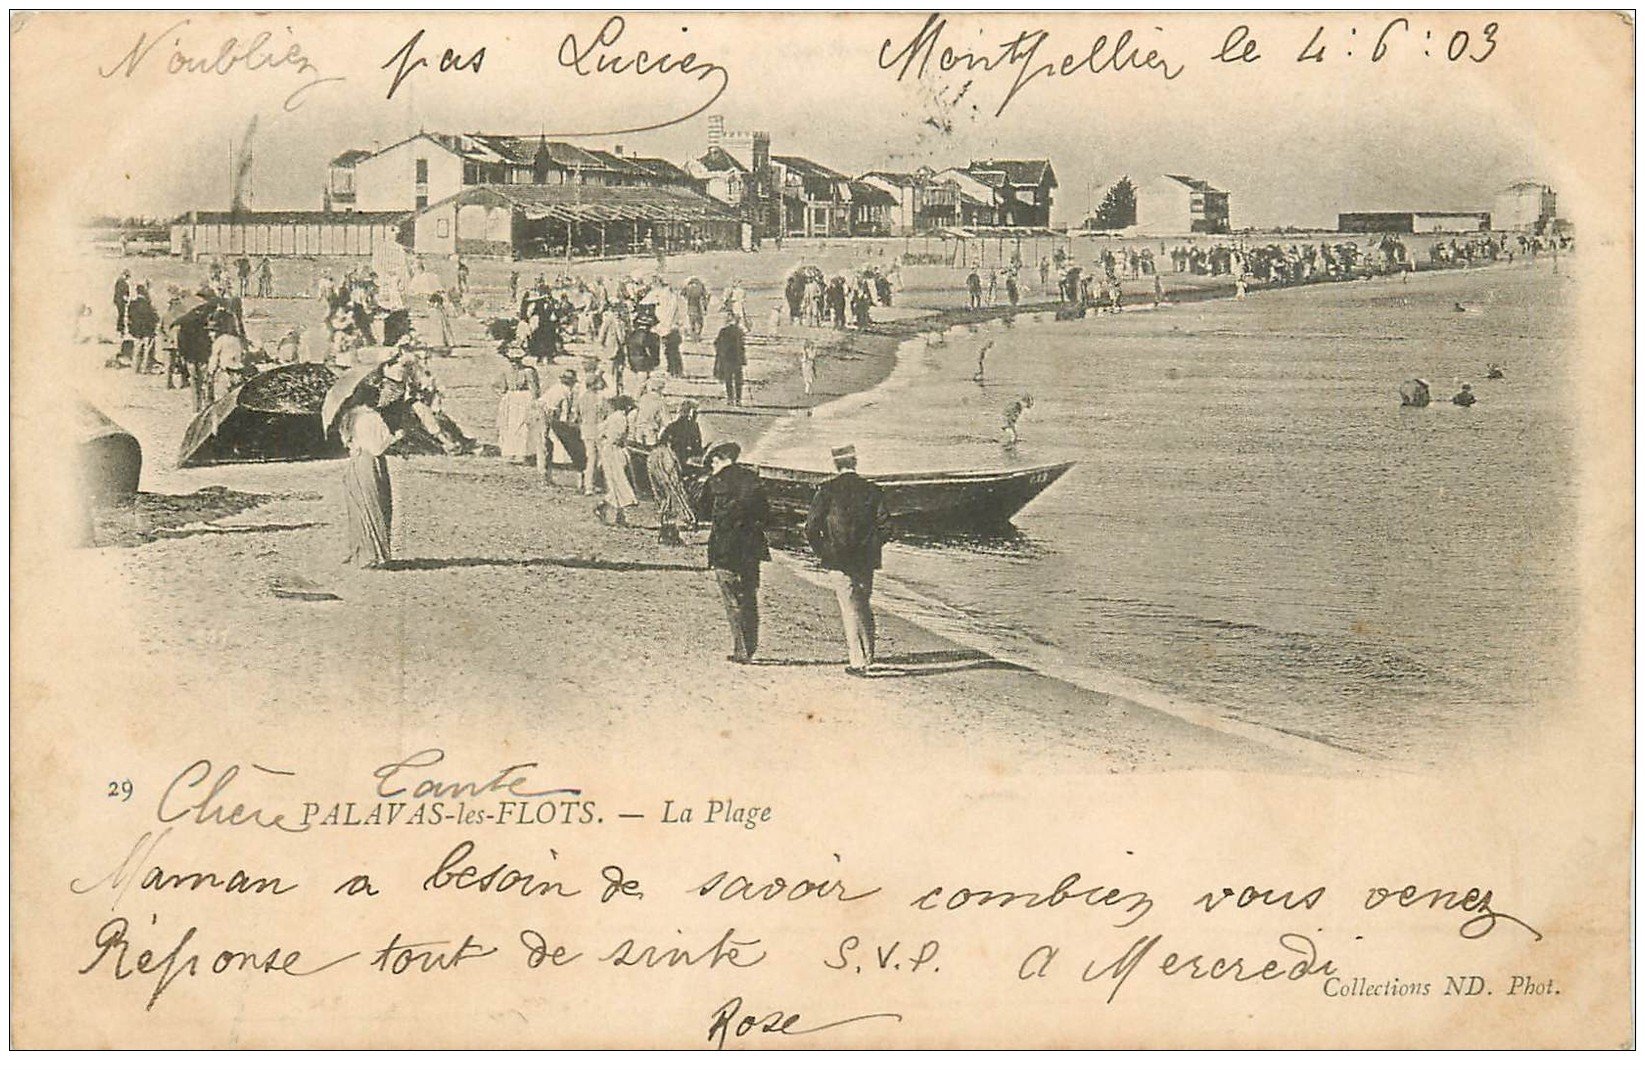 N'oubliez pas Lucien Montpellier le 4:6:03
29 Chère Tante
PALAVAS-les-FLOTS. — La Plage
Maman a besoin de savoir combien vous venez
Réponse tout de suite S.V.P. A Mercredi
Collections ND. Phot.
Rose